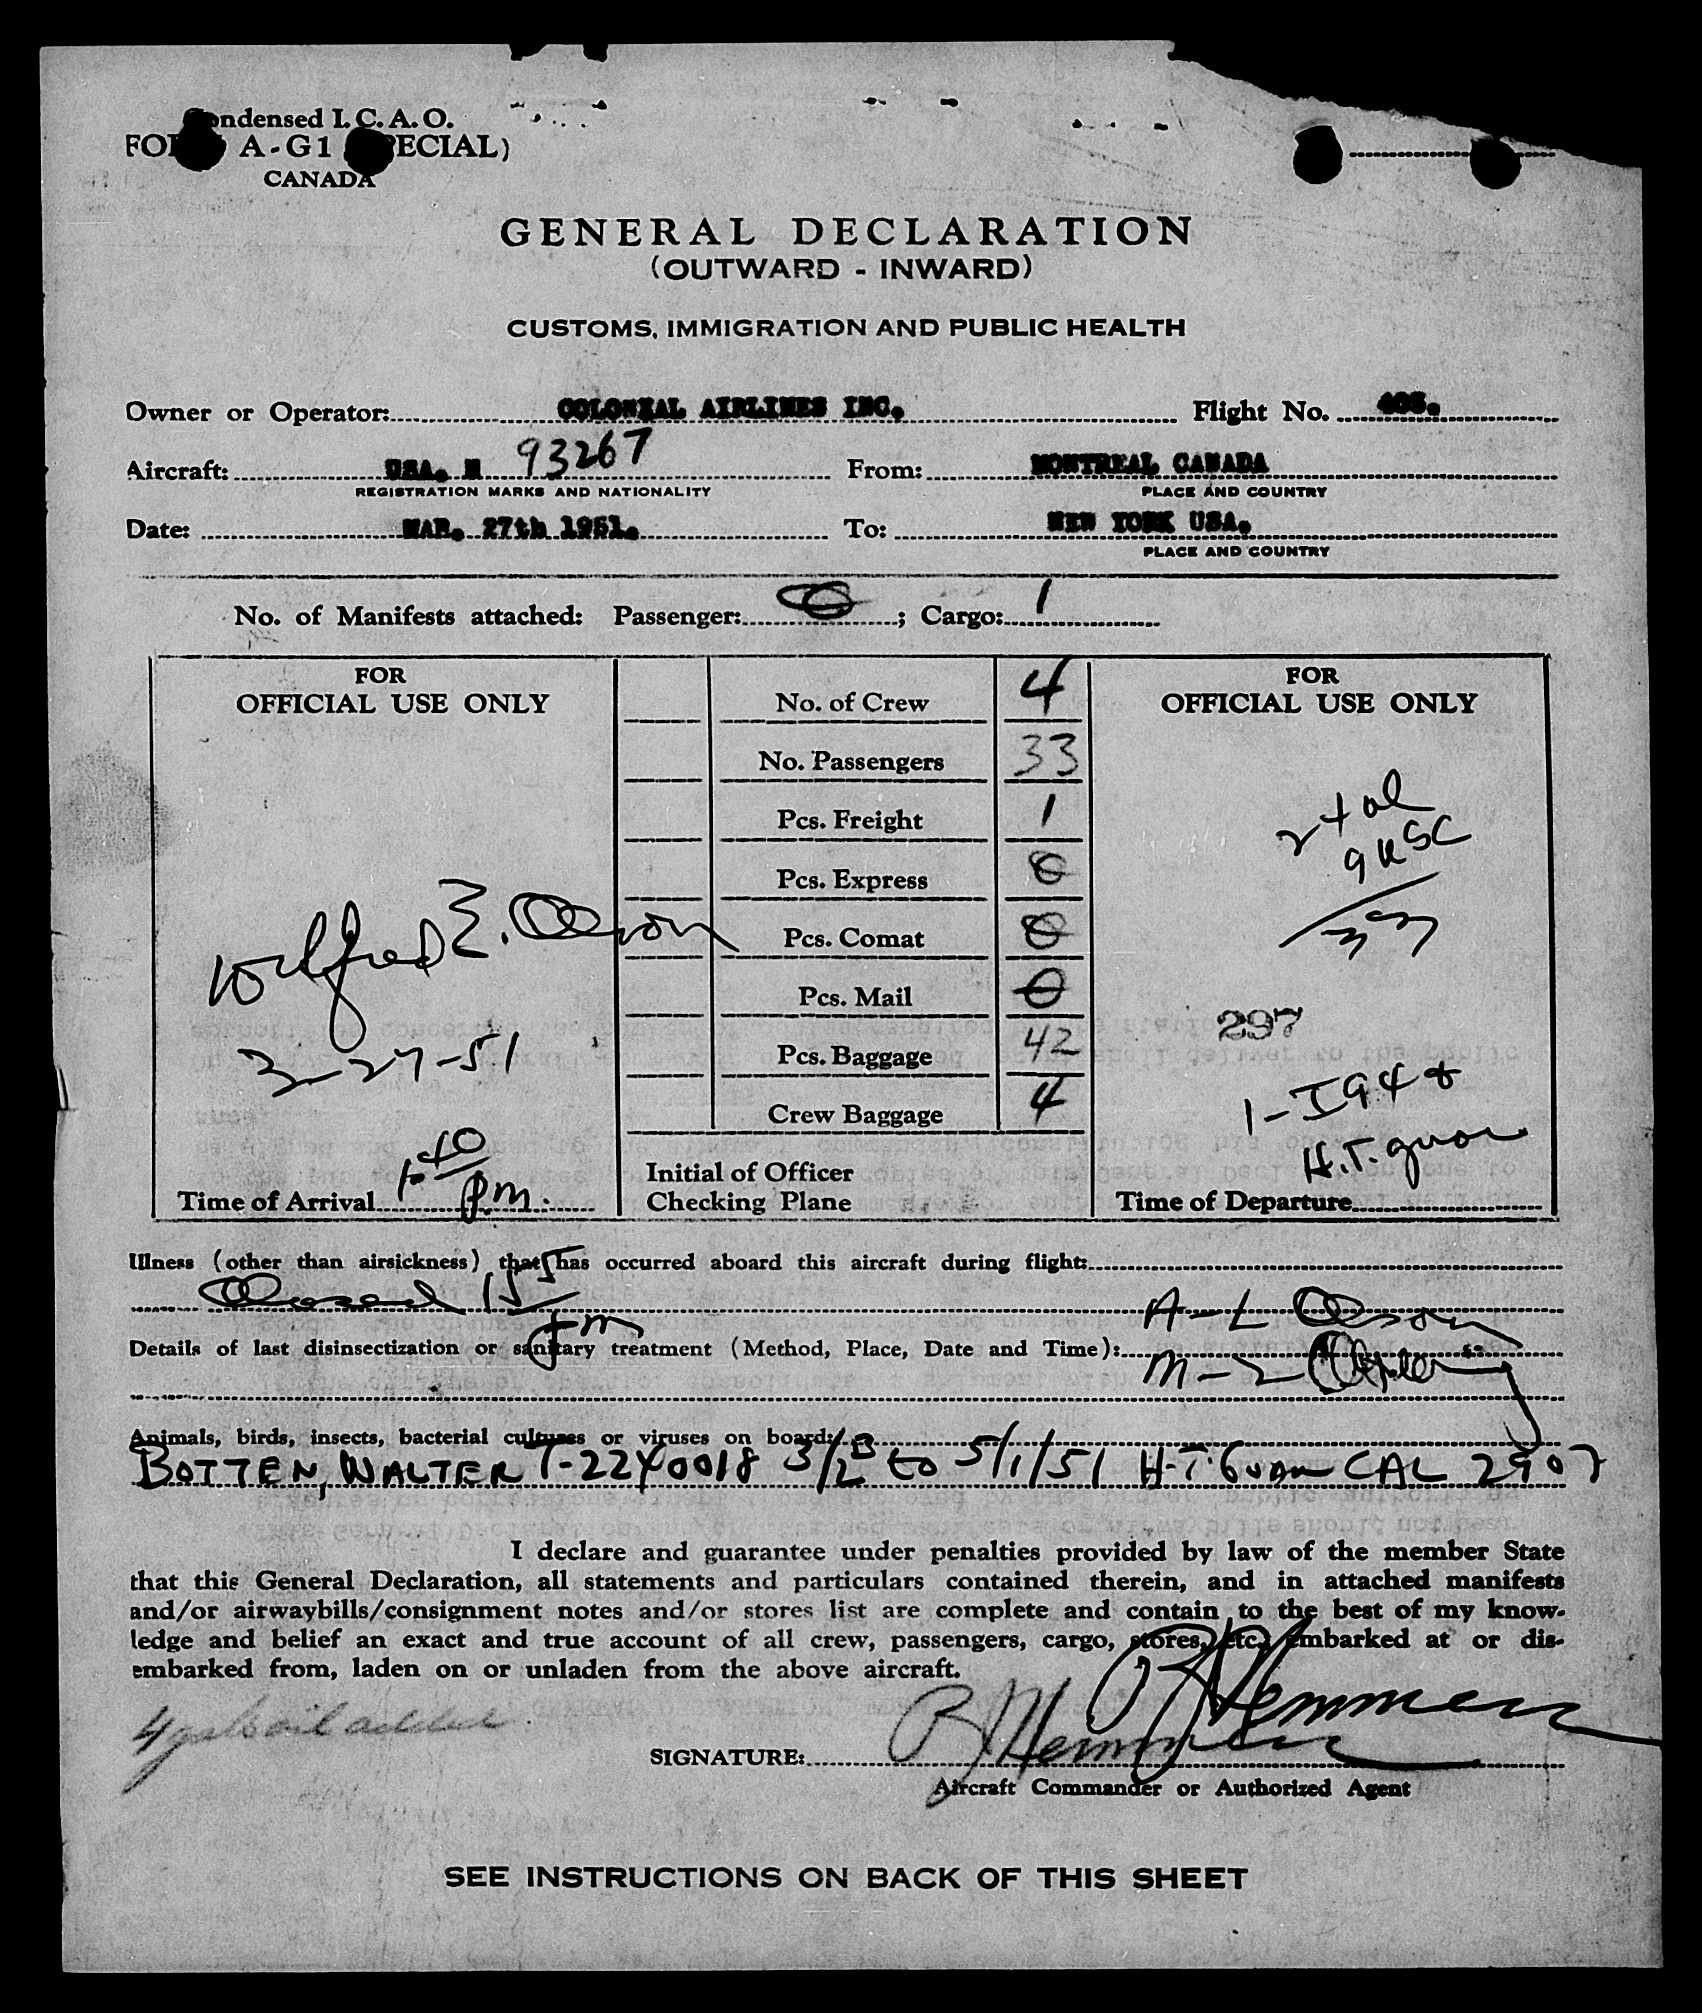 Condensed I. C. A. O.
A - G1
CANADA
GENERAL DECLARATION
(OUTWARD - INWARD)
CUSTOMS, IMMIGRATION AND PUBLIC HEALTH
Owner or Operator: COLONIAL AIRLINES INC. Flight No.
Aircraft: USA. N 93267 From: MONTREAL CANADA
REGISTRATION MARKS AND NATIONALITY PLACE AND COUNTRY
Date: MAR. 27th 1951. To: NEW YORK USA.
PLACE AND COUNTRY
No. of Manifests attached: Passenger: 0 ; Cargo: 1
FOR
OFFICIAL USE ONLY
No. of Crew 4
No. Passengers 33
Pcs. Freight 1
Pcs. Express 0
Pcs. Comat 0
Pcs. Mail 0
Pcs. Baggage 42
Crew Baggage 4
Initial of Officer
Checking Plane
Wilfred E. Olson
3-27-51
Time of Arrival 1:40 p.m.
FOR
OFFICIAL USE ONLY
33
297
H.T. Guon
Time of Departure
Illness (other than airsickness) that has occurred aboard this aircraft during flight:
A-L Olson
Details of last disinsectization or sanitary treatment (Method, Place, Date and Time):
Animals, birds, insects, bacterial cultures or viruses on board:
BOTTEN, WALTER T-2240018 to 5/1/51 H.T. CAL 2907
I declare and guarantee under penalties provided by law of the member State
that this General Declaration, all statements and particulars contained therein, and in attached manifests
and/or airwaybills/consignment notes and/or stores list are complete and contain to the best of my know-
ledge and belief an exact and true account of all crew, passengers, cargo, stores, etc. embarked at or dis-
embarked from, laden on or unladen from the above aircraft.
4 gals oil added
SIGNATURE:
Aircraft Commander or Authorized Agent
SEE INSTRUCTIONS ON BACK OF THIS SHEET